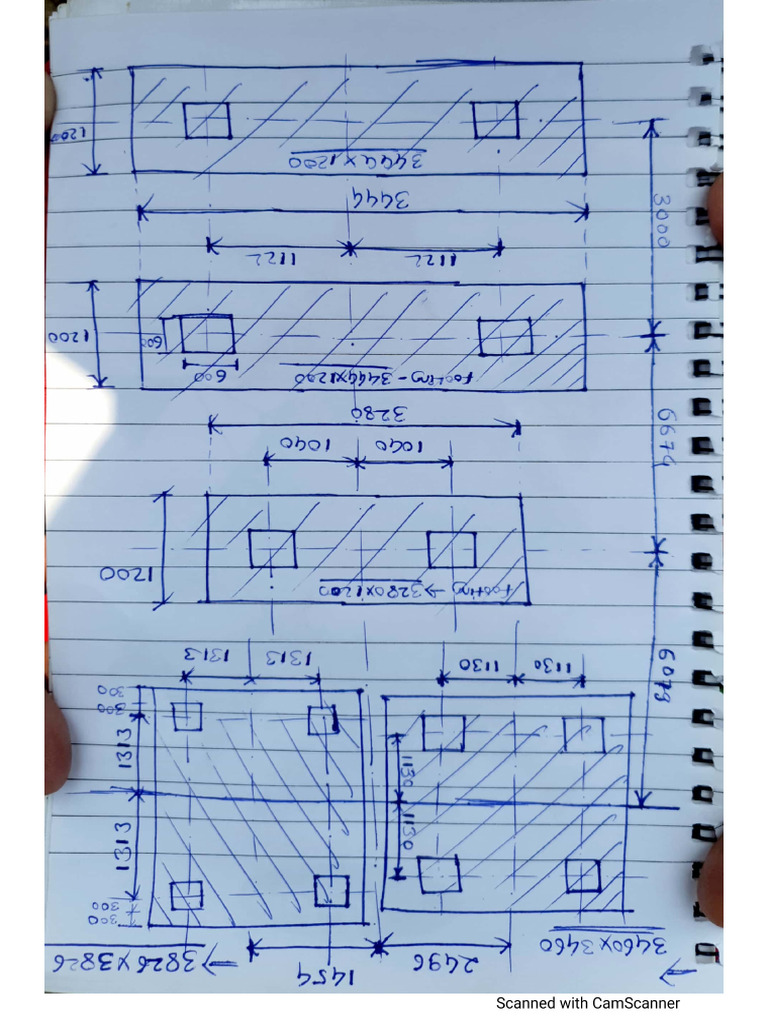 1200
3444x1200
3444
3000
1122
1122
1200
600
600
Footing - 3444x1200
3280
6674
1040
1040
1200
Footing → 3280x1200
1313
1313
1130
1130
6079
300
300
1313
1130
1313
1130
300
300
→ 3826 x 3826
1454
2496
3460x3460
Scanned with CamScanner